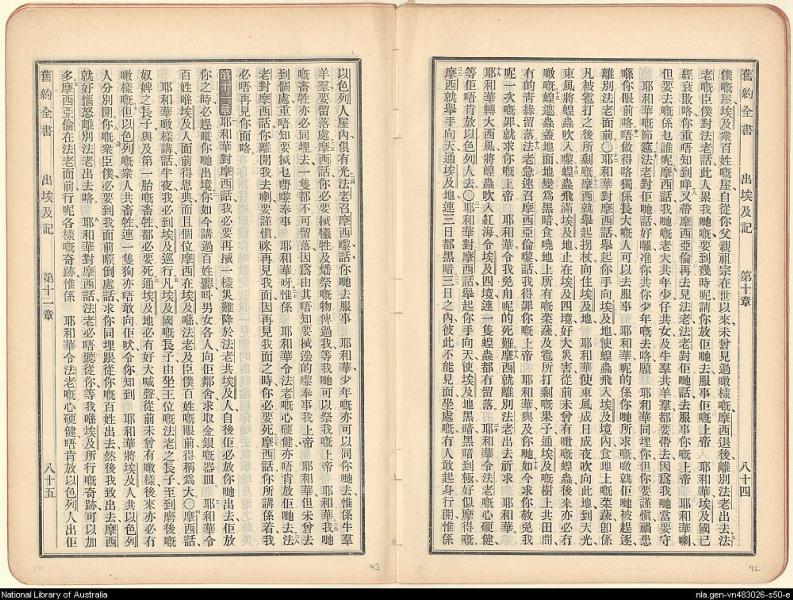 舊約全書 出埃及記 第十章 八十四
僕嘅屋埃及衆百姓嘅屋自從你父親祖宗在世以來未曾見過噉樣嘅摩西退後離別法老出去法
老嘅臣僕對法老話此人累我哋要到幾時呢請你放佢哋去服事佢嘅上帝 耶和華埃及國已
經衰敗咯你重唔知到咩又帶摩西亞倫再去見法老法老對佢哋話去服事你嘅上帝 耶和華喇
但要去嘅係乜誰呢摩西話我哋嘅老大共年少仔共女及牛羣共羊羣都要帶去因爲我哋當要守
耶和華嘅節筵法老對佢哋話好囉准你共你少年嘅去咯願 耶和華同埋你但你要謹愼禍患
喺你眼前咯唔做得咯獨係長大嘅人可以去服事 耶和華呢的係你哋所求嘅噉就佢哋被趕逐
離別法老面前○耶和華對摩西話舉起你手向埃及地使蝗蟲飛入埃及境內食地上嘅菜蔬卽係
凡被雹打之後所剩嘅摩西就舉起拐杖向住埃及地 耶和華使東風成日成夜吹向此地到天光
東風將蝗蟲吹入嚟蝗蟲飛滿埃及地止在埃及四境好大災害從前未曾有噉嘅蝗蟲後來亦必有
噉嘅蝗蟲遮蓋地面地變爲黑暗食曉地上所有嘅菜蔬及雹所打剩嘅果子通埃及嘅樹上共田間
有的靑綠留落法老急速召摩西亞倫嚟話我得罪你哋上帝 耶和華與及你哋如今求你赦免我
呢一次嘅罪就求你哋上帝 耶和華令我免呢的死難摩西就離別法老出去祈求 耶和華
耶和華轉大西風將蝗蟲吹入紅海令埃及四境連一隻蝗蟲都冇留落 耶和華令法老心硬健
等佢唔肯放以色列人去○耶和華對摩西話舉起你手向天使埃及地黑暗黑暗到極好似摩得嘅
摩西就舉手向天通埃及地連三日都黑暗三日之內彼此不能見面坐處嘅冇人敢起身行開惟係
92
舊約全書 出埃及記 第十一章 八十五
以色列人屋內俱有光法老召摩西嚟話你哋去服事 耶和華少年嘅亦可以同你哋去惟係牛羣
羊羣要留落處摩西話你必要將犧牲及燔祭嘅物俾過我等我哋可以祭我哋上帝 耶和華我哋
嘅畜牲亦必同埋去一隻都不可留落因爲由其唔知要將乜嘢嚟奉事 耶和華我哋上帝
到個處重唔知要將乜嘢嚟奉事 耶和華呀惟係 耶和華令法老嘅心硬健亦唔肯放佢哋去法
老對摩西話你離開我去喇要謹愼咪再見我面因再見我面之時你必要死摩西話你所講係着我
必唔再見你面咯
第十一章耶和華對摩西話我必要再將一樣災難降於法老共埃及人自後佢必放你哋出去佢放
你之時必趕離你哋出境你如今講過百姓聽呌男女各人向佢鄰舍求取金銀嘅器皿 耶和華令
百姓喺埃及人面前得恩典而且個位摩西在埃及地喺法老及臣僕百姓嘅眼前得稱爲大○摩西話
耶和華噉樣講話半夜我必到埃及巡行凡埃及國嘅長子由坐王位嘅法老之長子至到磨後嘅
奴婢之長子與及第一胎嘅畜牲都必要死通埃及地必有好大喊聲從前未曾有噉樣後來亦必冇
噉樣嘅但以色列嘅衆人共畜牲連一隻狗亦唔敢向佢吠令你知到 耶和華將埃及人共以色列
人分別開你嘅衆臣僕必要到我面前順倒處話求你同埋跟從你嘅百姓出去然後我致出去摩西
就好惱怒離別法老出去咯 耶和華對摩西話法老必唔聽從你等我喺埃及所行嘅奇跡可以加
多摩西亞倫在法老面前行呢各樣嘅奇跡惟係 耶和華令法老嘅心硬健唔肯放以色列人出佢
93
National Library of Australia
nla.gen-vn483026-s50-e